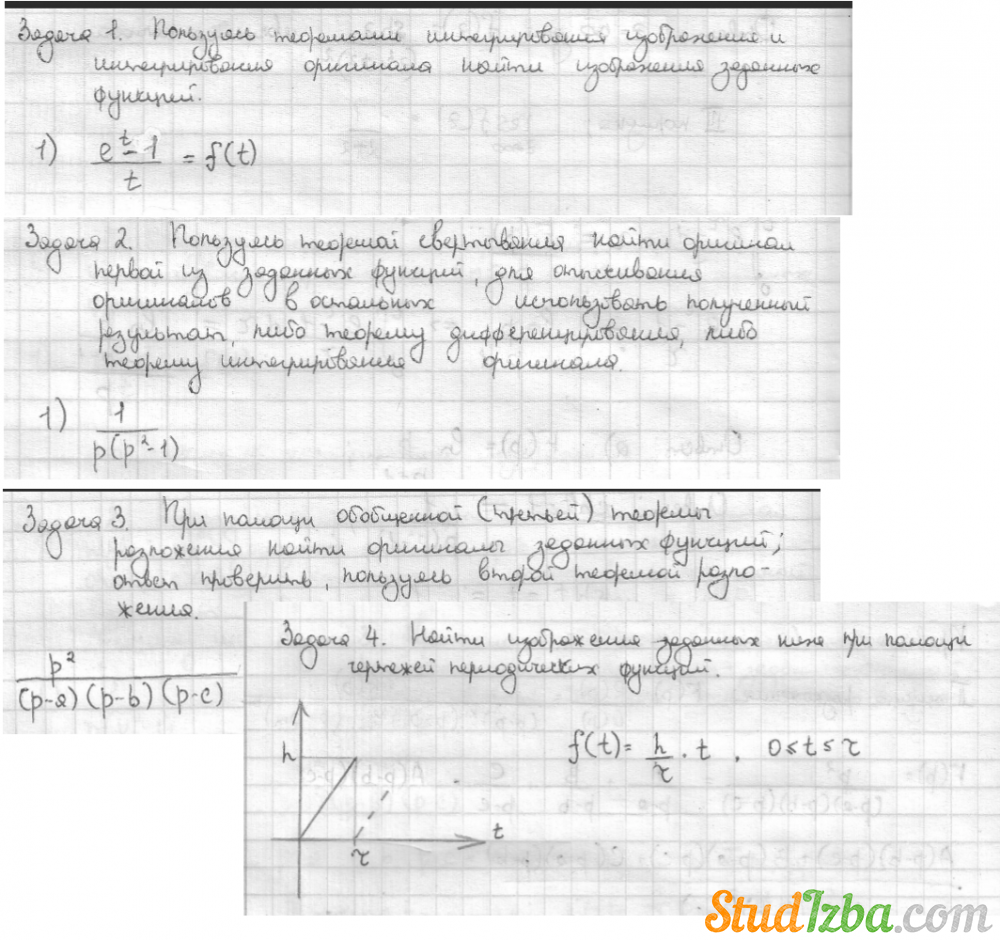 Задача 1. Пользуясь теоремами интегрирования изображения и
интегрирования оригинала найти изображения заданных
функций.
1) (e^t - 1)/t = f(t)
Задача 2. Пользуясь теоремой свертывания найти оригинал
первой из заданных функций, для отыскивания
оригиналов в остальных использовать полученный
результат, либо теорему дифференцирования, либо
теорему интегрирования оригинала.
1) 1/(p(p²-1))
Задача 3. При помощи обобщенной (третьей) теоремы
разложения найти оригиналы заданных функций;
ответ проверить, пользуясь второй теоремой разло-
жения.
p²/((p-a)(p-b)(p-c))
Задача 4. Найти изображения заданных ниже при помощи
чертежей периодических функций.
f(t) = h/τ · t, 0≤t≤τ
h
t
τ
StudIzba.com